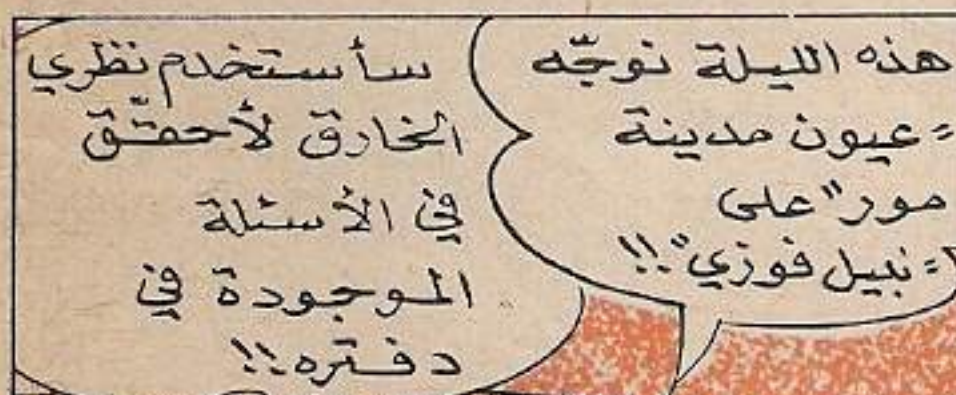 هذه الليلة نوجّه
"عيون مدينة
مور" على
"نبيل فوزي"!!
سأستخدم نظري
الخارق لأحقّق
في الأسئلة
الموجودة في
دفتره!!